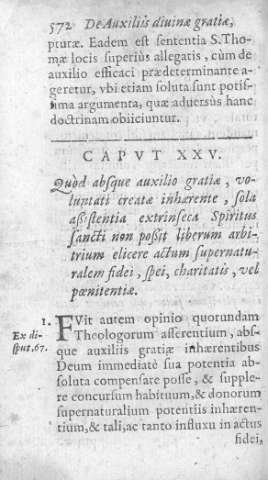 572 De Auxiliis diuinæ gratiæ,
pturæ. Eadem est sententia S. Tho-
mæ locis superiùs allegatis, cùm de
auxilio efficaci prædeterminante a-
geretur, vbi etiam soluta sunt potis-
sima argumenta, quæ aduersùs hanc
doctrinam obiiciuntur.
CAPVT XXV.
Quòd absque auxilio gratiæ, vo-
luntati creatæ inhærente, sola
assistentia extrinseca Spiritus
sancti non possit liberum arbi-
trium elicere actum supernatu-
ralem fidei, spei, charitatis, vel
pœnitentiæ.
1. FVit autem opinio quorundam
Ex di- Theologorum asserentium, abs-
sput. 67. que auxiliis gratiæ inhærentibus
Deum immediatè sua potentia ab-
soluta compensare posse, & supple-
re concursum habituum, & donorum
supernaturalium potentiis inhæren-
tium, & tali, ac tanto influxu in actus
fidei,